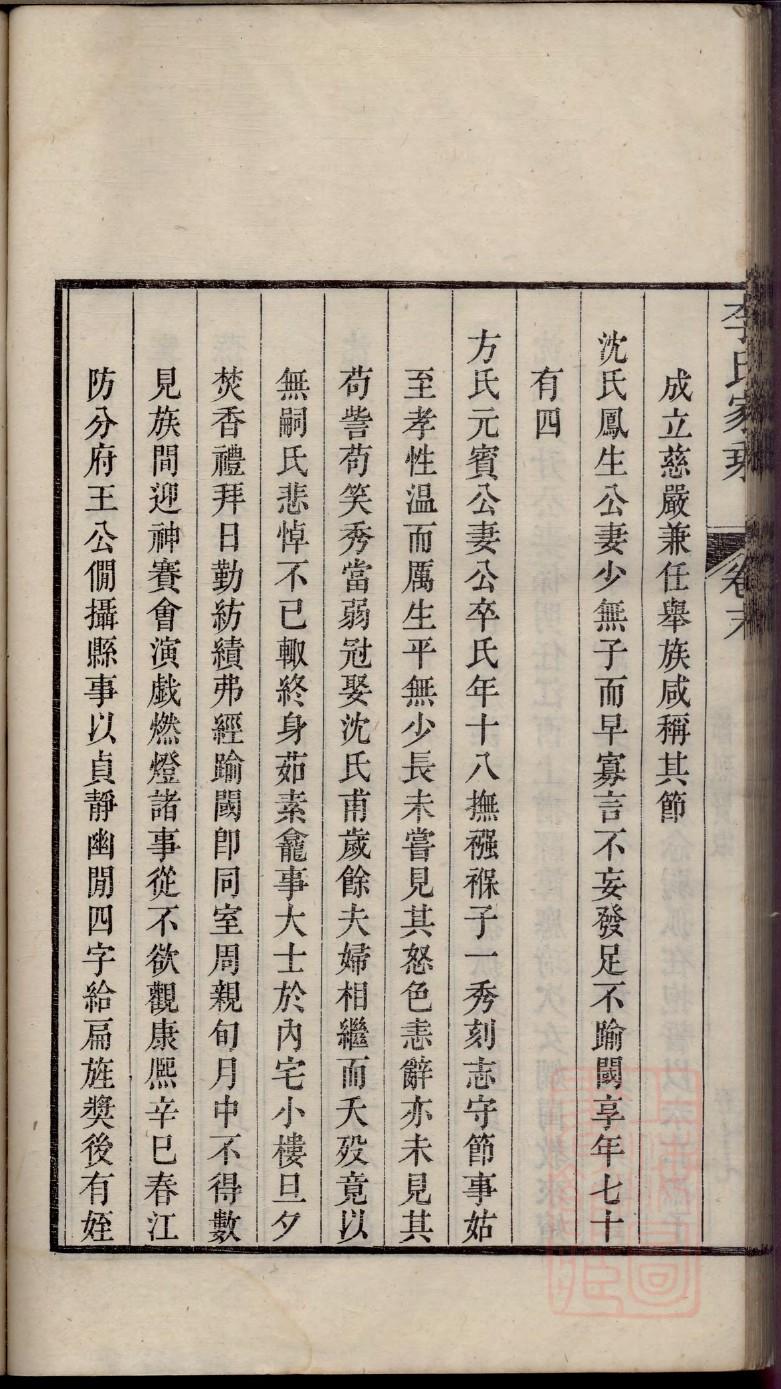 李氏家乘 卷末
成立慈嚴兼任舉族咸稱其節
沈氏鳳生公妻少無子而早寡言不妄發足不踰閾享年七十
有四
方氏元賓公妻公卒氏年十八撫襁褓子一秀刻志守節事姑
至孝性溫而厲生平無少長未嘗見其怒色恚辭亦未見其
苟訾苟笑秀當弱冠娶沈氏甫歲餘夫婦相繼而夭歿竟以
無嗣氏悲悼不已輙終身茹素龕事大士於內宅小樓旦夕
焚香禮拜日勤紡績弗經踰閾卽同室周親旬月中不得數
見族間迎神賽會演戯燃燈諸事從不欲觀康熈辛巳春江
防分府王公僩攝縣事以貞靜幽閒四字給扁旌獎後有姪